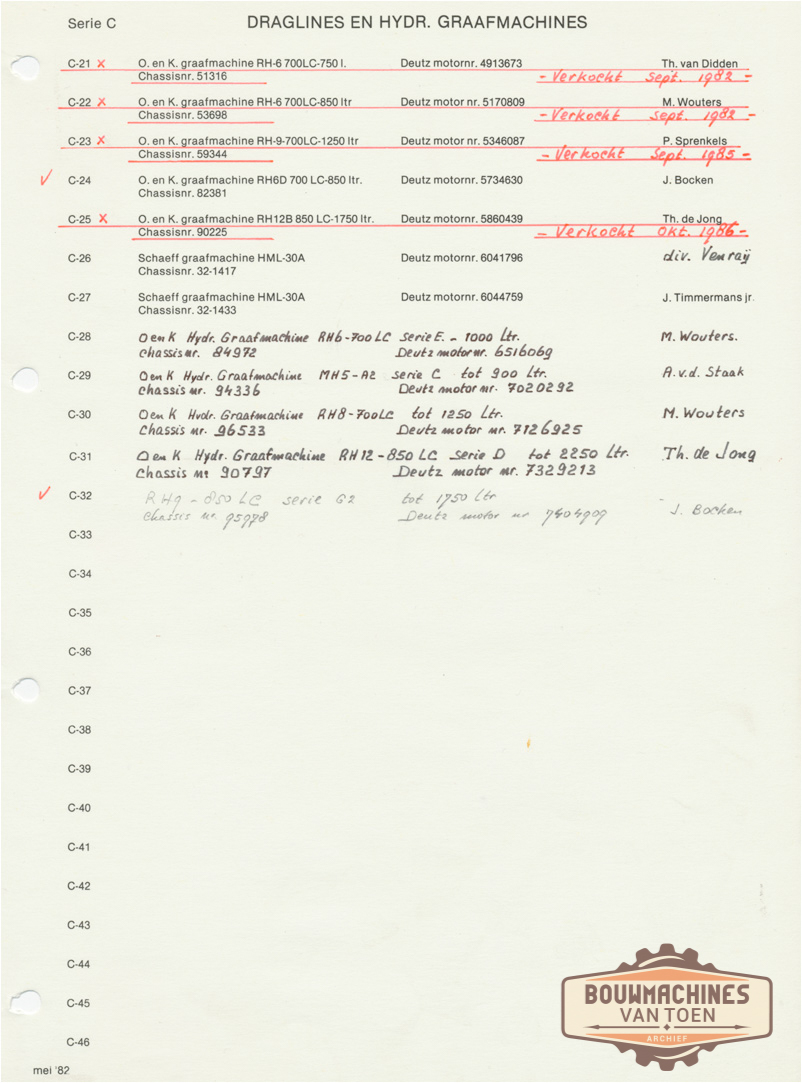 Serie C DRAGLINES EN HYDR. GRAAFMACHINES
C-21 x O. en K. graafmachine RH-6 700LC-750 l. Deutz motornr. 4913673 Th. van Didden
Chassisnr. 51316 - Verkocht Sept. 1982 -
C-22 x O. en K. graafmachine RH-6 700LC-850 ltr Deutz motor nr. 5170809 M. Wouters
Chassisnr. 53698 - Verkocht Sept. 1982 -
C-23 x O. en K. graafmachine RH-9-700LC-1250 ltr Deutz motor nr. 5346087 P. Sprenkels
Chassisnr. 59344 - Verkocht Sept. 1985 -
✓ C-24 O. en K. graafmachine RH6D 700 LC-850 ltr. Deutz motornr. 5734630 J. Bocken
Chassisnr. 82381
C-25 x O. en K. graafmachine RH12B 850 LC-1750 ltr. Deutz motornr. 5860439 Th. de Jong
Chassisnr. 90225 - Verkocht Okt. 1986 -
C-26 Schaeff graafmachine HML-30A Deutz motornr. 6041796 div. Venraÿ
Chassisnr. 32-1417
C-27 Schaeff graafmachine HML-30A Deutz motornr. 6044759 J. Timmermans jr.
Chassisnr. 32-1433
C-28 O en K Hydr. Graafmachine RH6-700LC Serie E. - 1000 Ltr. M. Wouters.
Chassisnr. 84972 Deutz motornr. 6516069
C-29 O en K Hydr. Graafmachine MH5-A2 serie C tot 900 Ltr. A.v.d. Staak
Chassis nr. 94336 Deutz motor nr. 7020292
C-30 O en K Hydr. Graafmachine RH8-700LC tot 1250 Ltr. M. Wouters
Chassis nr. 96533 Deutz motor nr. 7126925
C-31 O en K Hydr. Graafmachine RH12-850 LC Serie D tot 2250 Ltr. Th. de Jong
Chassis nr 90797 Deutz motor nr. 7329213
✓ C-32 RH9-850 LC serie G2 tot 1750 Ltr J. Bocken
Chassis nr. 95978 Deutz motor nr 7404909
C-33
C-34
C-35
C-36
C-37
C-38
C-39
C-40
C-41
C-42
C-43
C-44
C-45
C-46
mei '82
BOUWMACHINES
VAN TOEN
ARCHIEF